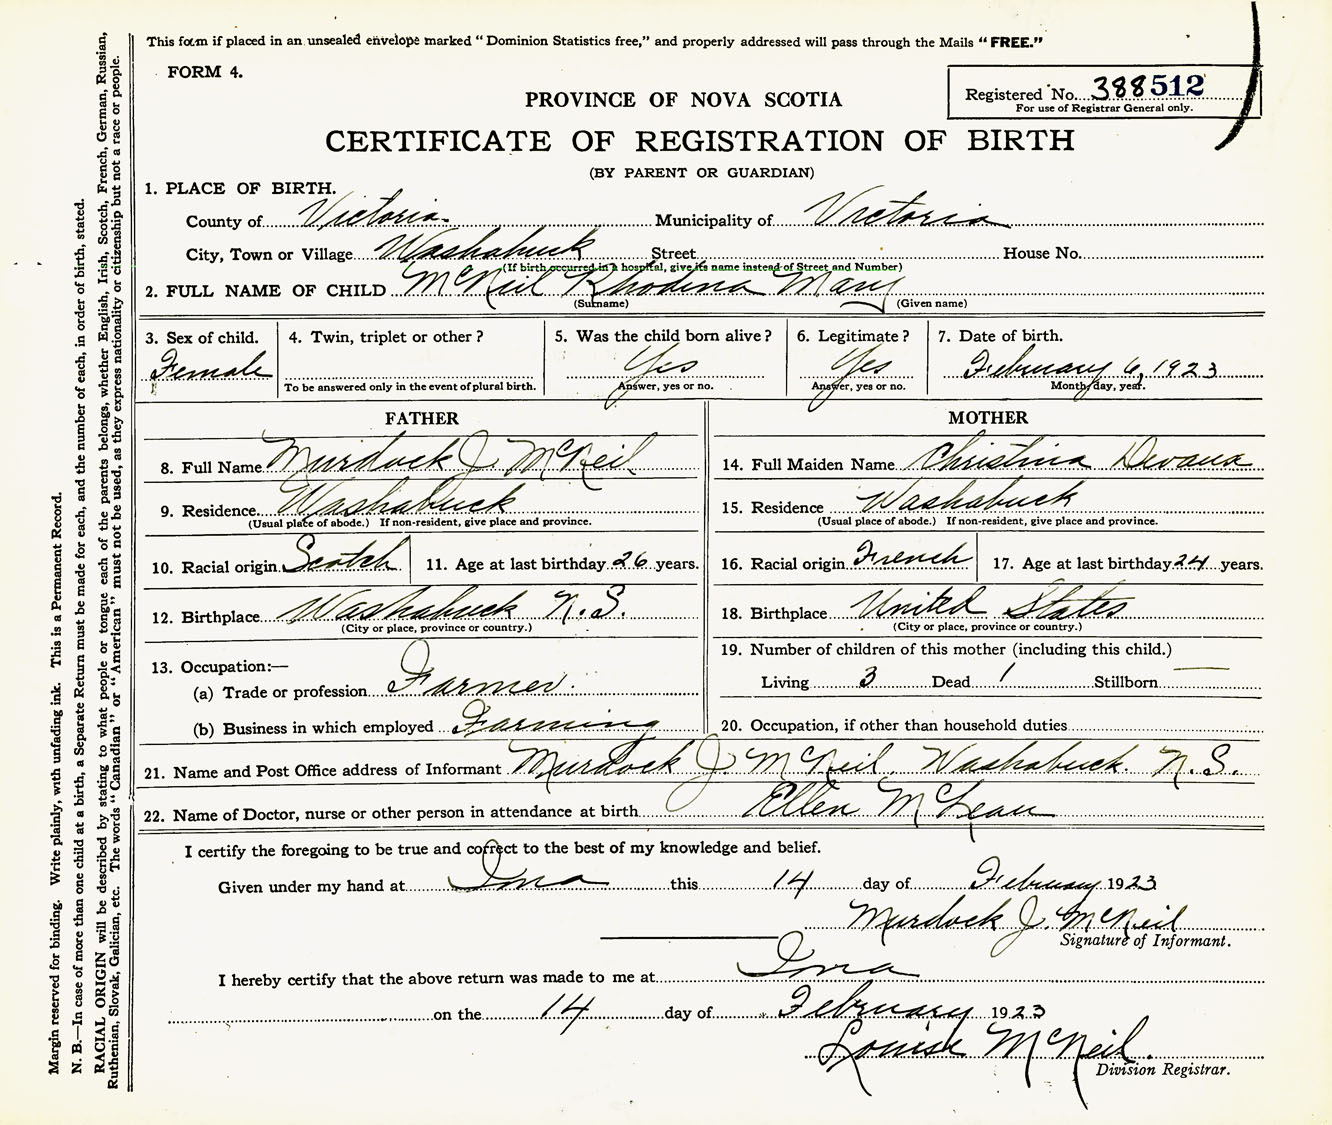 This form if placed in an unsealed envelope marked "Dominion Statistics free," and properly addressed will pass through the Mails "FREE."
FORM 4.
Registered No. 388512
For use of Registrar General only.
PROVINCE OF NOVA SCOTIA
CERTIFICATE OF REGISTRATION OF BIRTH
(BY PARENT OR GUARDIAN)
1. PLACE OF BIRTH.
County of Victoria Municipality of Victoria
City, Town or Village Washabuck Street House No.
(If birth occurred in a hospital, give its name instead of Street and Number)
2. FULL NAME OF CHILD McNeil Rhodena Mary
(Surname) (Given name)
3. Sex of child. 4. Twin, triplet or other? 5. Was the child born alive? 6. Legitimate? 7. Date of birth.
Female Yes Yes February 6, 1923
To be answered only in the event of plural birth. Answer, yes or no. Answer, yes or no. Month, day, year.
FATHER MOTHER
8. Full Name Murdock J. McNeil 14. Full Maiden Name Christina
9. Residence Washabuck 15. Residence Washabuck
(Usual place of abode.) If non-resident, give place and province. (Usual place of abode.) If non-resident, give place and province.
10. Racial origin Scotch 11. Age at last birthday 26 years. 16. Racial origin French 17. Age at last birthday 24 years.
12. Birthplace Washabuck N.S. 18. Birthplace United States
(City or place, province or country.) (City or place, province or country.)
13. Occupation:— 19. Number of children of this mother (including this child.)
(a) Trade or profession Farmer. Living 3 Dead 1 Stillborn —
(b) Business in which employed Farming 20. Occupation, if other than household duties
21. Name and Post Office address of Informant Murdock J. McNeil. Washabuck. N.S.
22. Name of Doctor, nurse or other person in attendance at birth Ellen McLean
I certify the foregoing to be true and correct to the best of my knowledge and belief.
Given under my hand at Iona this 14 day of February 1923
Murdock J. McNeil
Signature of Informant.
I hereby certify that the above return was made to me at Iona
on the 14 day of February 1923
Louise McNeil.
Division Registrar.
Margin reserved for binding. Write plainly, with unfading ink. This is a Permanent Record.
N. B.—In case of more than one child at a birth, a Separate Return must be made for each, and the number of each, in order of birth, stated.
RACIAL ORIGIN will be described by stating to what people or tongue each of the parents belongs, whether English, Irish, Scotch, French, German, Russian,
Ruthenian, Slovak, Galician, etc. The words "Canadian" or "American" must not be used, as they express nationality or citizenship but not a race or people.